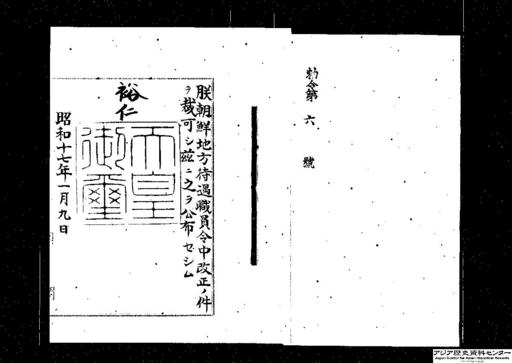 勅令第六號
朕朝鮮地方待遇職員令中改正ノ件
ヲ裁可シ茲ニ之ヲ公布セシム
裕仁
天皇
御璽
昭和十七年一月九日
アジア歴史資料センター
Japan Center for Asian Historical Records